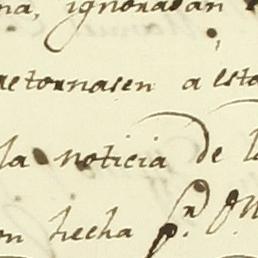 na, ignoraban
retornasen a esto
la noticia de l
on hecha pr.